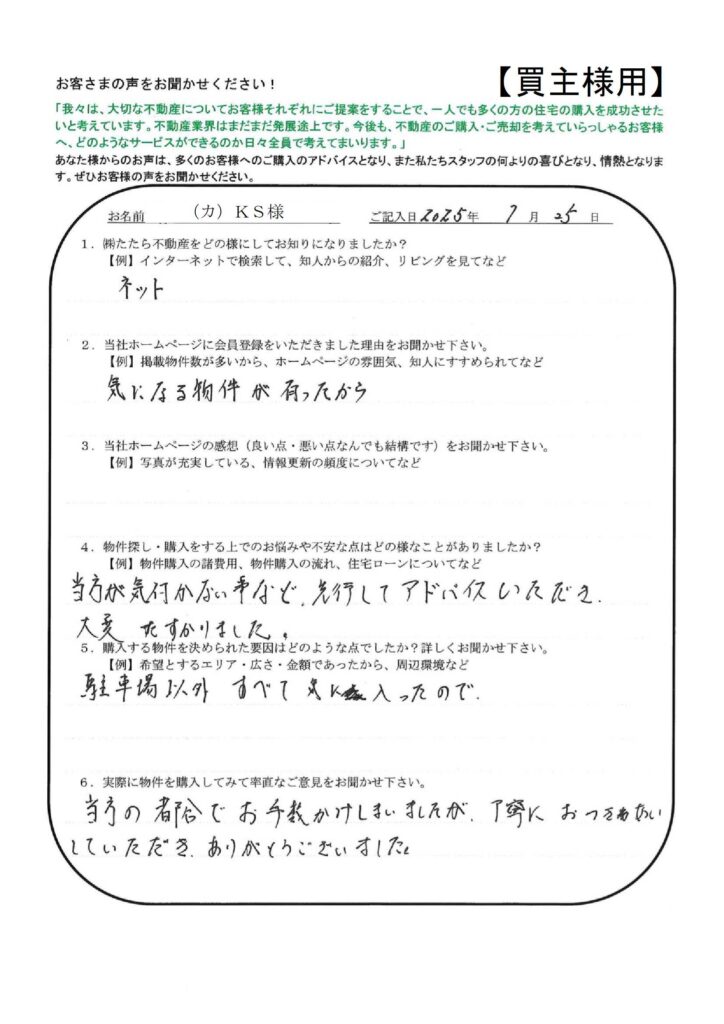 お客さまの声をお聞かせください！
【買主様用】
「我々は、大切な不動産についてお客様それぞれにご提案をすることで、一人でも多くの方の住宅の購入を成功させた
いと考えています。不動産業界はまだまだ発展途上です。今後も、不動産のご購入・ご売却を考えていらっしゃるお客様
へ、どのようなサービスができるのか日々全員で考えてまいります。」
あなた様からのお声は、多くのお客様へのご購入のアドバイスとなり、また私たちスタッフの何よりの喜びとなり、情熱となりま
す。ぜひお客様の声をお聞かせください。
お名前 （カ）ＫＳ様 ご記入日 2025 年 7 月 25 日
１．㈱たたら不動産をどの様にしてお知りになりましたか？
【例】インターネットで検索して、知人からの紹介、リビングを見てなど
ネット
２．当社ホームページに会員登録をいただきました理由をお聞かせ下さい。
【例】掲載物件数が多いから、ホームページの雰囲気、知人にすすめられてなど
気になる物件が有ったから
３．当社ホームページの感想（良い点・悪い点なんでも結構です）をお聞かせ下さい。
【例】写真が充実している、情報更新の頻度についてなど
４．物件探し・購入をする上でのお悩みや不安な点はどの様なことがありましたか？
【例】物件購入の諸費用、物件購入の流れ、住宅ローンについてなど
当方が気付かない事など、先行してアドバイスいただき、
大変たすかりました。
５．購入する物件を決められた要因はどのような点でしたか？詳しくお聞かせ下さい。
【例】希望とするエリア・広さ・金額であったから、周辺環境など
駐車場以外すべて気に入ったので、
６．実際に物件を購入してみて率直なご意見をお聞かせ下さい。
当方の都合でお手数かけしまいましたが、丁寧に
していただき、ありがとうございました。